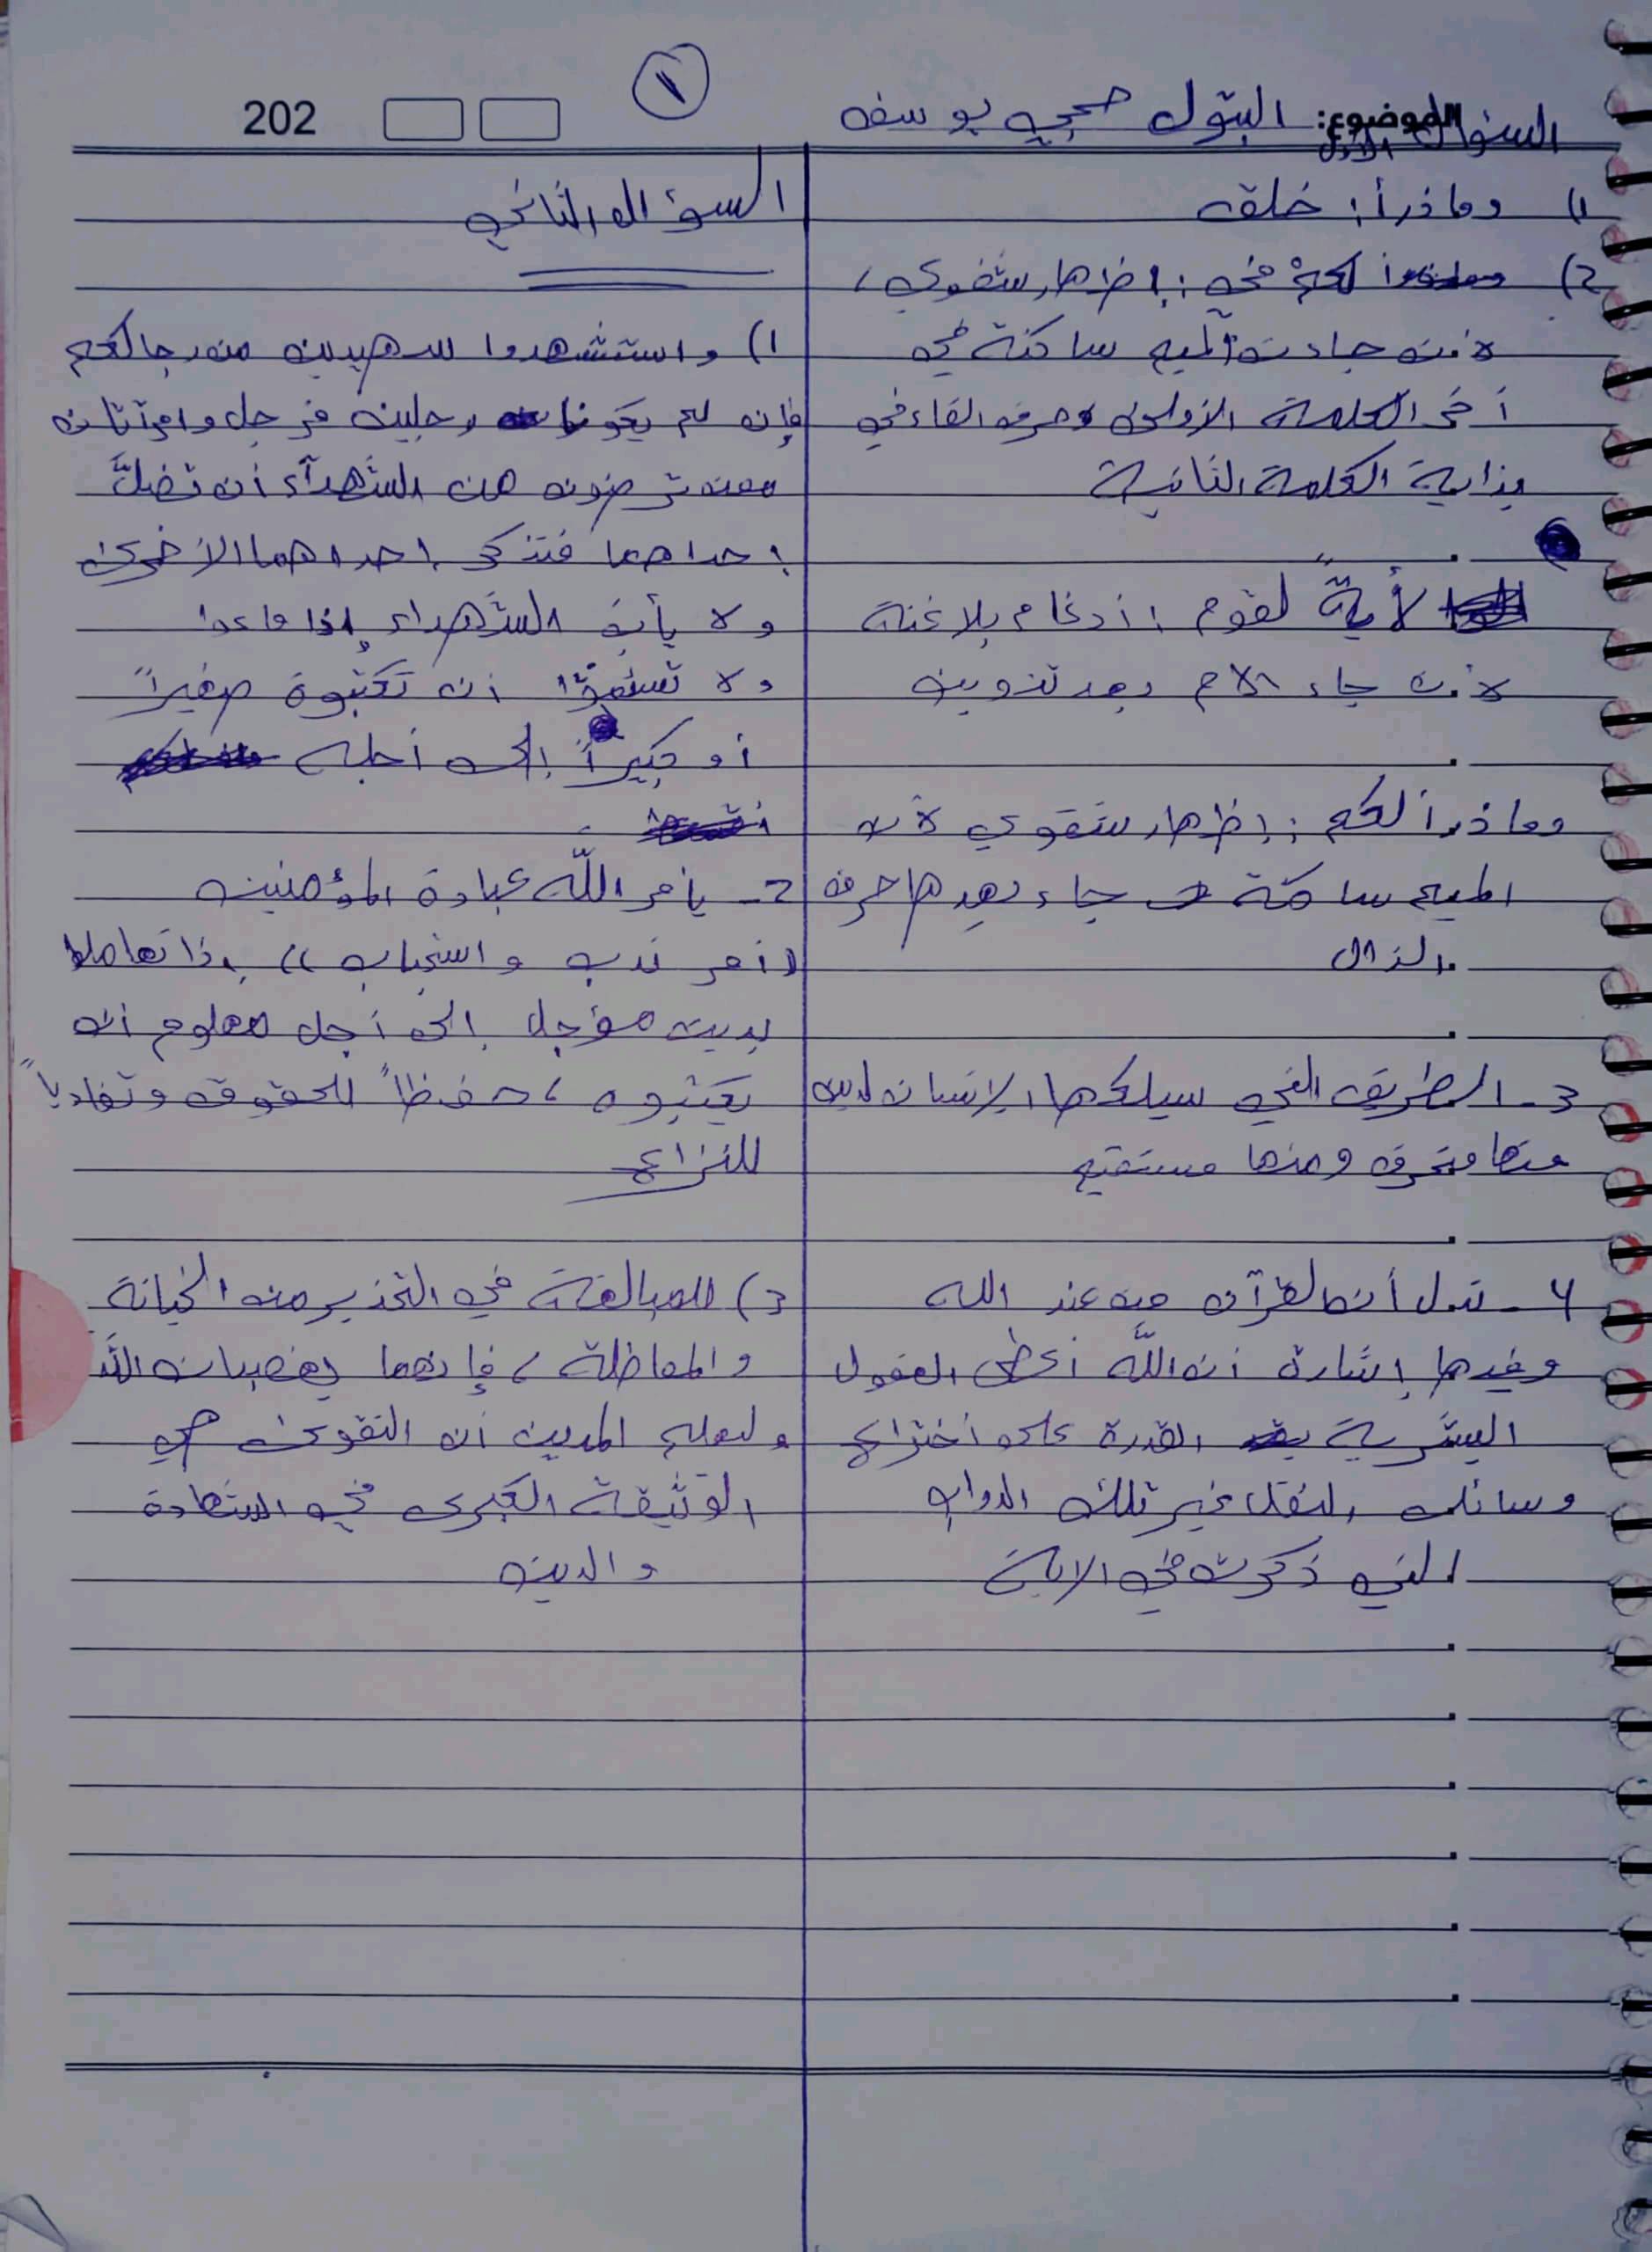 202
١
الموضوع: البتول حجي يوسف
السؤال الأول
1) وما ذرأ: خلق
2) لكم في: إظهار شفوي،
لأن جاءت الميم ساكنة في
أخر الكلمة الأولى وحرف الفاء في
بداية الكلمة الثانية
لأيةً لقوم: أدغام بلا غنة
لأن جاء الام بعد تنوين
وما ذرأ لكم: إظهار شفوي لأن
الميم ساكنة جاء بعدها حرف
الذال
3- الطريق التي سيلكها الإنسان
منها منحرف ومنها مستقيم
4- تدل أن القرآن من عند الله
وفيها إشارة أن اللّه أعطى العقول
البشرية القدرة على أختراع
وسائل النقل غير تلك الدواب
التي ذكرت في الاية
السؤال الثاني
1) واستشهدوا شهيدين من رجالكم
فإن لم يكونا رجلين فرجل وامرأتان
ممن ترضون من الشهدآء أن تضلَّ
إحداهما فتذكر إحداهما الأخرى
ولا يأبَ الشهداء إذا ما دعوا
ولا تسئموا أن تكتبوة صغيراً
أو كبيراً إلى أجله
2- يأمر اللّه عبادة المؤمنين
((أمر ندب واستحباب)) إذا تعاملوا
بدين مؤجل إلى أجل معلوم أن
يكتبوه، حفظاً للحقوق وتفادياً
للنزاع
3) للمبالغة في التحذير من الخيانة
والمماطلة، فإنهما يغضبان اللَّه
وليعلم المدين أن التقوى هي
الوثيقة الكبرى في الشهادة
والدين